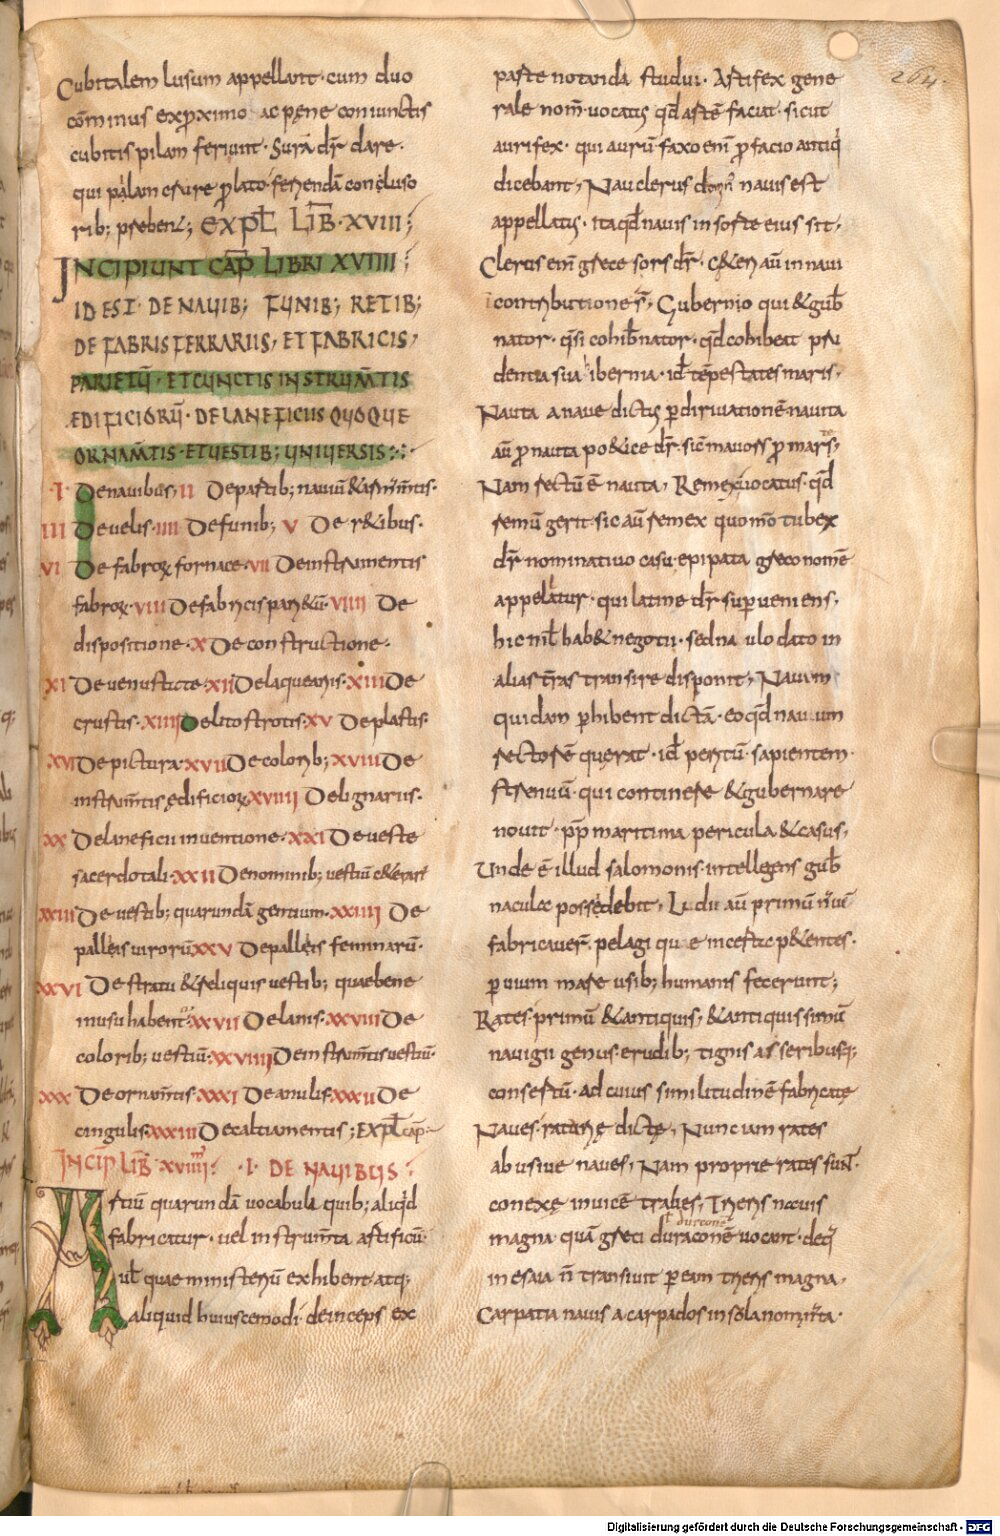 Cubitalem lusum appellant· cum duo
cōminus ex proximo ac pęne coniunctis
cubitis pilam feriunt· Surā dr̄ dare·
qui palam crure prolato feriendā concluso
rib; prębent; EXPL LIB· XVIII;
INCIPIUNT CAP LIBRI XVIIII;
ID EST· DE NAVIB; FUNIB; RETIB;
DE FABRIS FERRARIIS, ET FABRICIS,
PARIETŪ· ET CUNCTIS INSTRUM̄TIS
ÆDIFICIORŪ· DE LANEFICIIS QUOQUE
ORNAM̄TIS· ET VESTIB; UNIVERSIS:·:·
·I· De navibus, II De partib; naviū & arm̄m̄tis·
III De velis· IIII De funib; V De r&ibus·
VI De fabroꝝ fornace· VII De instrumentis
fabroꝝ· VIII De fabricis pari&ū· VIIII De
dispositione· X De constructione·
XI De venustate· XII De laquearis· XIII De
crustis· XIIII De litostrotis· XV De plastis·
XVI De pictura· XVII De colorib; XVIII De
instrum̄tis ędificioꝝ XVIIII De lignariis·
XX De laneficii inventione· XXI De veste
sacerdotali· XXII De nominib; vestiū c&erarū
XXIII De vestib; quarundā gentium· XXIIII De
palleis virorū XXV De palleis feminarū·
XXVI De stratu & reliquis vestib; quae bene
in usu habent· XXVII De lanis· XXVIII De
colorib; vestiū· XXVIIII De instrum̄tis vestiū·
XXX De ornam̄tis· XXXI De anulis· XXXII De
cingulis· XXXIII De calciamentis; EXPL cap·
INCIP LIB XVIIII· ·I· DE NAVIBUS;
Artiū quarundā vocabula quib; aliqd
fabricatur· vel instrum̄ta artificū·
vel quae ministeriū exhibent· atq;
aliquid huiuscemodi· deinceps ex
parte notanda studui· Artifex gene
rale nom̄· vocatus qd artē faciat· sicut
aurifex· qui aurū faxo eni pro facio antiq
dicebant, Nauclerus navis est
appellatus· ita qd navis in sorte eius sit,
Cleros eni grece sors dr̄· c&eri aū in navi
contributione Gubernio qui & gub
nator· qsi cohibnator· qd cohibeat pru
dentia sua iberma· id tēpestates maris,
Nauta a nave dictus p dirivationē navita
aū pro nauta poetice dr̄· sic mavors pro mars,
Nam rectū ē nauta, Remex vocatus· qd
remū gerit· sic aū remex quomo tubex
dr̄ nominativo casu· epipata greco nomē
appellatur· qui latine dr̄ superveniens,
hic nihil hab& negotii· sed navlo dato in
alias trās transire disponit, Navem
quidam perhibent dictā· eo qd navum
rectorē querat· id peritū· sapientem·
strenuū· qui continere & gubernare
novit· pp maritima pericula & casus,
Unde ē illud salomonis· intellegens gub
nacula possedebit, Lydii aū primū
fabricaver, pelagi quae incerta p&entes·
pervium mare usib; humanis fecerunt;
Rates· primū & antiquis, & antiquissimū
navigii genus· erudib; tignis asseribusq;
consertū· ad cuius similitudinē fabricatę
Naves· ratarię dictę, Nunc iam rates
abusive naves, Nam proprie rates sunt·
conexę invicē trabes, Trieris navis
magna quā greci duraconē vocant· deq
in esaia n̄ transivit per eam trieris magna,
Carpatia navis a carpados insola nominata·
264·
Digitalisierung gefördert durch die Deutsche Forschungsgemeinschaft - DFG